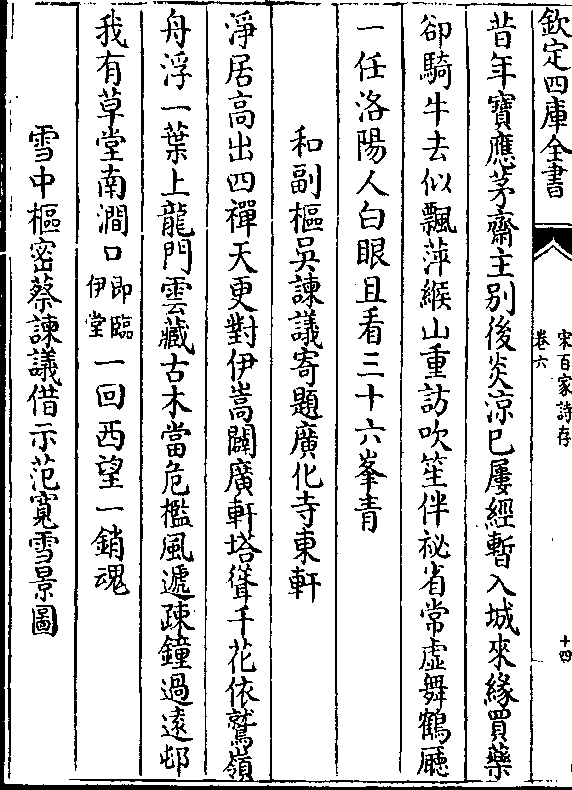 欽定四庫全書
宋百家詩存
卷六
十四
昔年寶應茅齋主别後炎涼已屢經暫入城來緣買藥
卻騎牛去似飄萍緱山重訪吹笙伴祕省常虚舞鶴廳
一任洛陽人白眼且看三十六峯青
和副樞吳諫議寄題廣化寺東軒
淨居高出四禪天更對伊嵩闢廣軒塔聳千花依鷲嶺
舟浮一葉上龍門雲藏古木當危檻風遞疎鐘過遠邨
我有草堂南澗口即臨伊堂一回西望一銷魂
雪中樞密蔡諫議借示范寬雪景圖